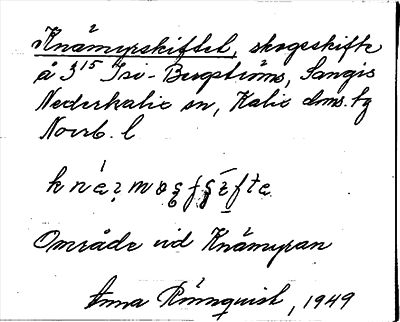 Knämyrskiftet, skogsskifte
å 3¹⁵ Isi-Bergströms, Sangis
Nederkalix sn, Kalix dms. tg
Norrb. l
Område vid Knämyran
Anna Rönnquist, 1949